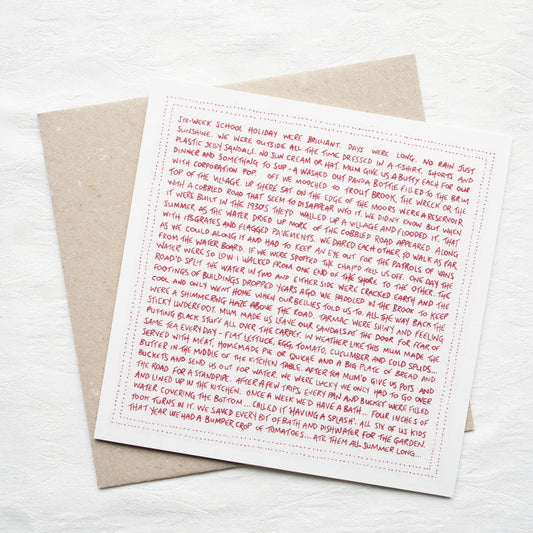 SIX-WEEK SCHOOL HOLIDAY WERE BRILLIANT. DAYS WERE LONG. NO RAIN JUST
SUNSHINE. WE WERE OUTSIDE ALL THE TIME DRESSED IN A T-SHIRT, SHORTS AND
PLASTIC JELLY SANDALS. NO SUN CREAM OR HAT. MUM GIVE US A BUTTY EACH FOR OUR
DINNER AND SOMETHING TO SUP - A WASHED OUT PANDA BOTTLE FILLED TO THE BRIM
WITH CORPORATION POP. OFF WE MOOCHED TO TROUT BROOK, THE WRECK OR THE
TOP OF THE VILLAGE. UP THERE SAT ON THE EDGE OF THE MOORS WERE A RESERVOIR
WITH A COBBLED ROAD THAT SEEM TO DISAPPEAR INTO IT. WE DIDN'T KNOW BUT WHEN
IT WERE BUILT IN THE 1930'S THEY'D WALLED UP A VILLAGE AND FLOODED IT. THAT
SUMMER AS THE WATER DRIED UP MORE OF THE COBBLED ROAD APPEARED ALONG
WITH ITS GRATES AND FLAGGED PAVEMENTS. WE DARED EACH OTHER TO WALK AS FAR
AS WE COULD ALONG IT AND HAD TO KEEP AN EYE OUT FOR THE PATROLS OF VANS
FROM THE WATER BOARD. IF WE WERE SPOTTED THE CHAP'D TELL US OFF. ONE DAY THE
WATER WERE SO LOW I WALKED FROM ONE END OF THE SHORE TO THE OTHER. THE
ROAD'D SPLIT THE WATER IN TWO AND EITHER SIDE WERE CRACKED EARTH AND THE
FOOTINGS OF BUILDINGS DROPPED YEARS AGO. WE PADDLED IN THE BROOK TO KEEP
COOL AND ONLY WENT HOME WHEN OUR BELLIES TOLD US TO. ALL THE WAY BACK THE
WERE A SHIMMERING HAZE ABOVE THE ROAD. TARMAC WERE SHINY AND FEELING
STICKY UNDERFOOT. MUM MADE US LEAVE OUR SANDALS AT THE DOOR FOR FEAR OF
PUTTING BLACK STUFF ALL OVER THE CARPET. IN WEATHER LIKE THIS MUM MADE THE
SAME TEA EVERYDAY - FLAT LETTUCE, EGG, TOMATO, CUCUMBER AND COLD SPUDS...
SERVED WITH MEAT, HOMEMADE PIE OR QUICHE AND A BIG PLATE OF BREAD AND
BUTTER IN THE MIDDLE OF THE KITCHEN TABLE. AFTER TEA MUM'D GIVE US POTS AND
BUCKITS AND SEND US OUT FOR WATER. WE WERE LUCKY WE ONLY HAD TO GO OVER
THE ROAD FOR A STANDPIPE. AFTER A FEW TRIPS EVERY PAN AND BUCKET WERE FILLED
AND LINED UP IN THE KITCHEN. ONCE A WEEK WE'D HAVE A BATH... FOUR INCHES OF
WATER COVERING THE BOTTOM... CALLED IT 'HAVING A SPLASH'. ALL SIX OF US KIDS
TOOK TURNS IN IT. WE SAVED EVERY BIT OF BATH AND DISHWATER FOR THE GARDEN.
THAT YEAR WE HAD A BUMPER CROP OF TOMATOES... ATE THEM ALL SUMMER LONG...